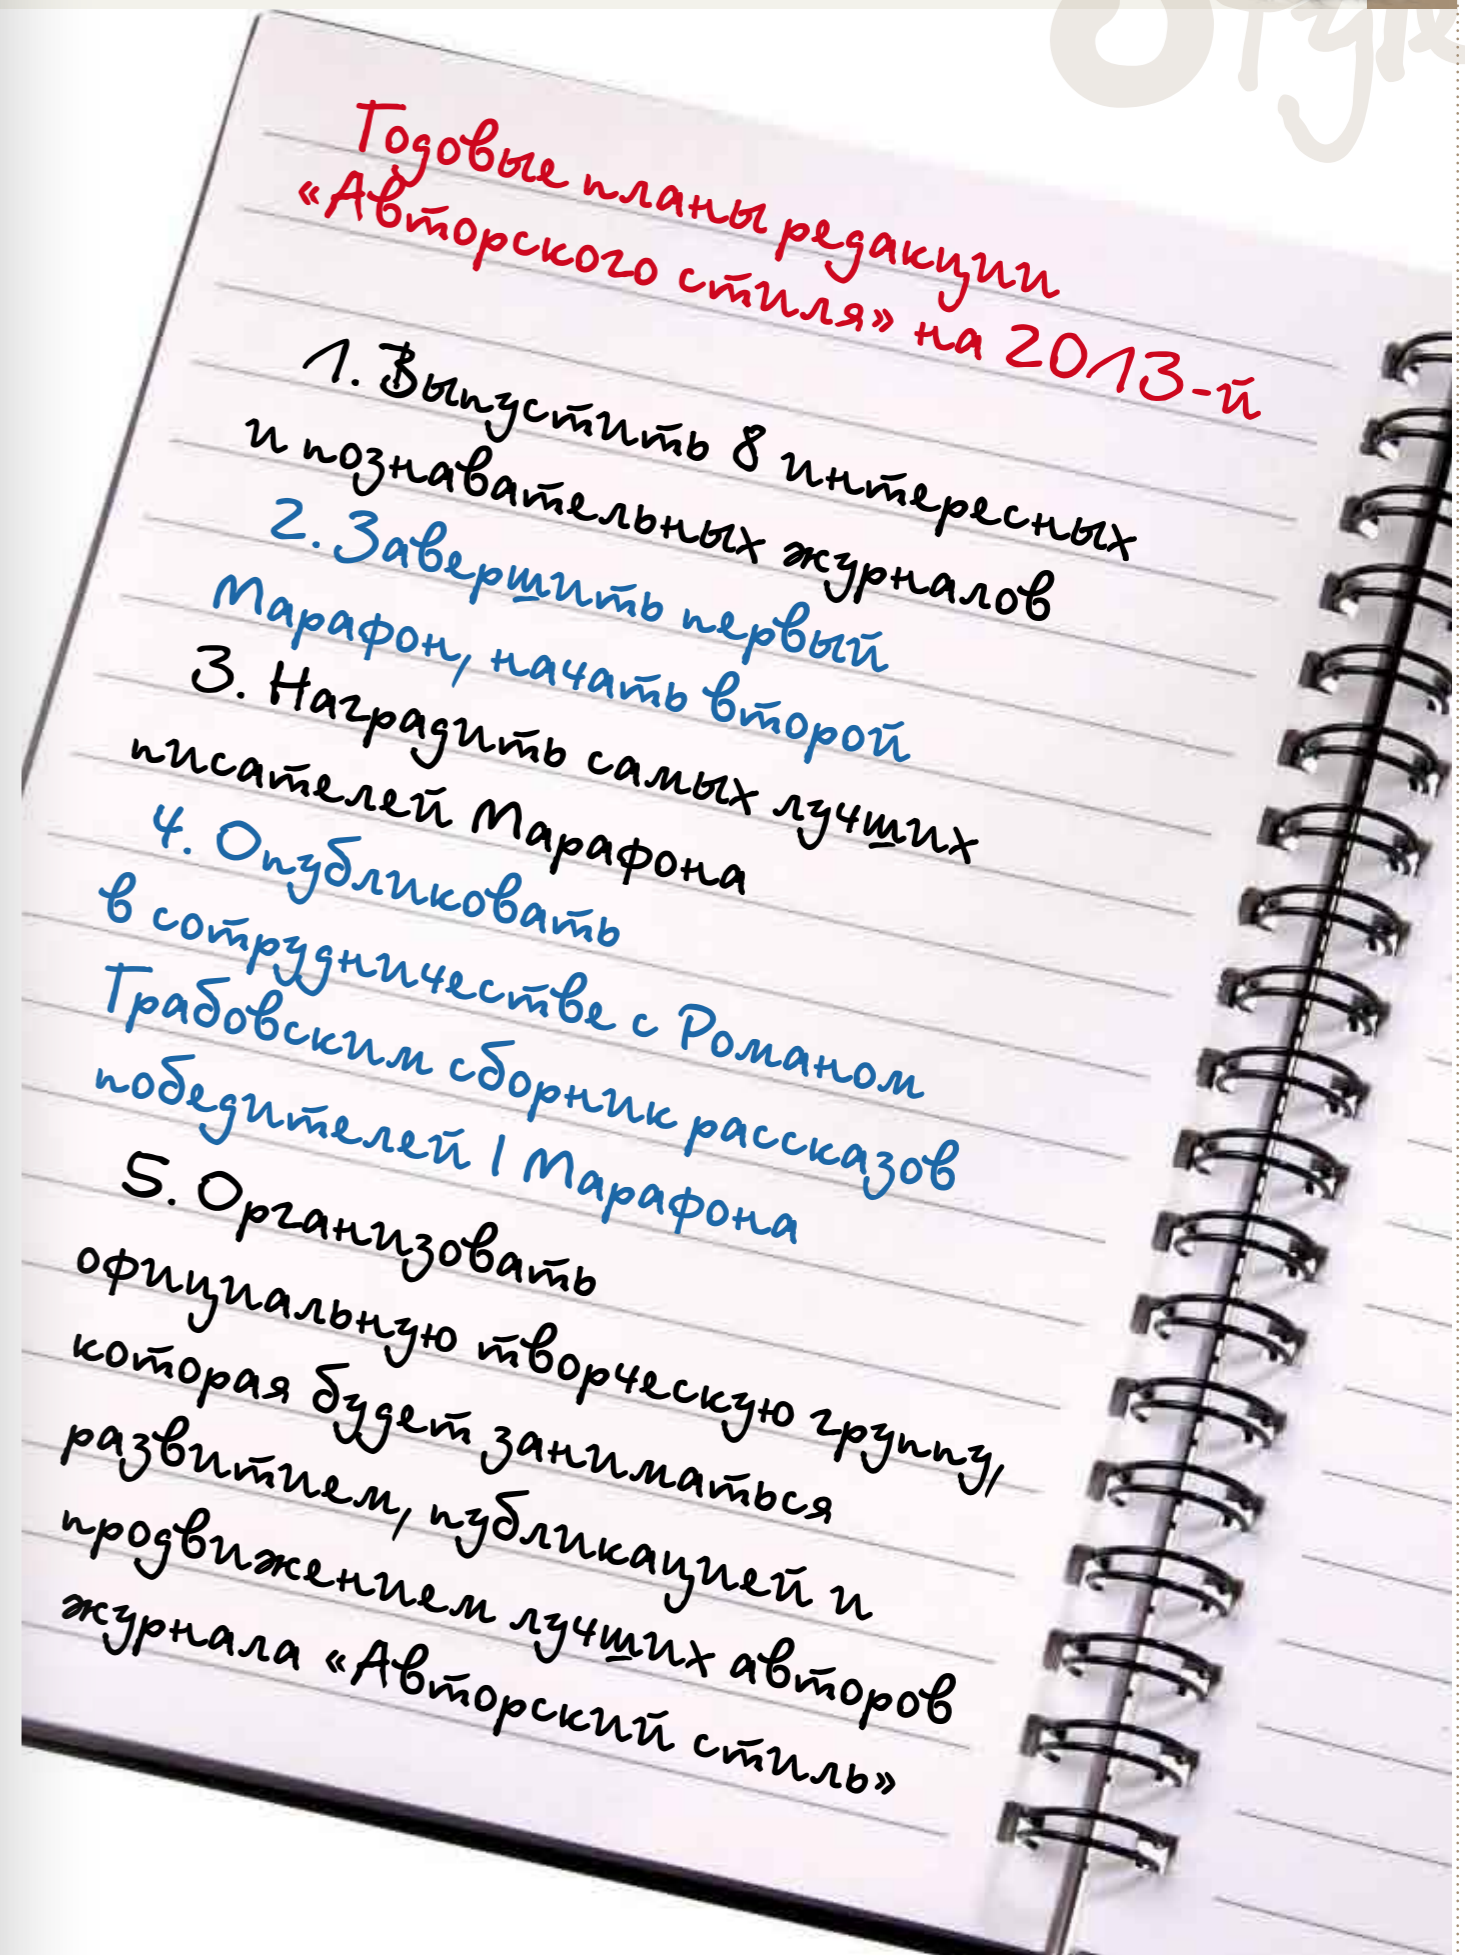 Style
Годовые планы редакции
«Авторского стиля» на 2013-й
1. Выпустить 8 интересных
и познавательных журналов
2. Завершить первый
Марафон, начать второй
3. Наградить самых лучших
писателей Марафона
4. Опубликовать
в сотрудничестве с Романом
Грабовским сборник рассказов
победителей I Марафона
5. Организовать
официальную творческую группу,
которая будет заниматься
развитием, публикацией и
продвижением лучших авторов
журнала «Авторский стиль»